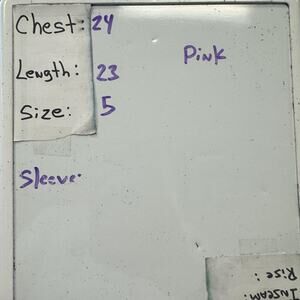 Chest: 24
Pink
Length: 23
Size: 5
Sleeve:
Rise:
Inseam: